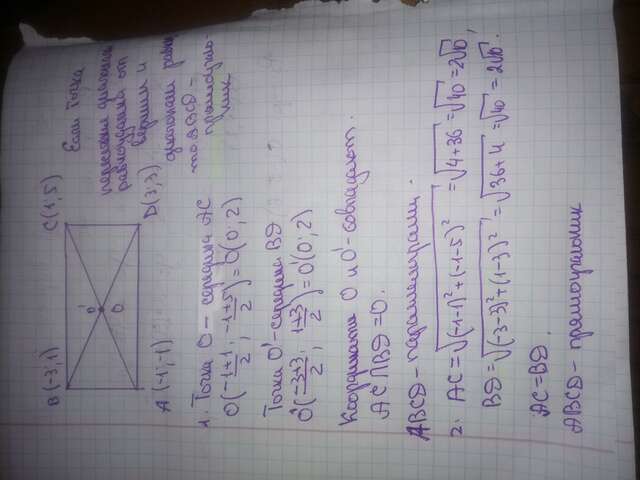 B(-3;1) C(1;5)
O' O
A(-1;-1) D(3;3)
Если точка
пересечения
равноудалена от
вершин и
диагонали равны
то ABCD -
прямоуголь-
ник
1. Точка O - середина AC
O(-1+1/2; -1+5/2) = O(0; 2)
Точка O' - середина BD
O'(-3+3/2; 1+3/2) = O'(0; 2)
Координаты O и O' - совпадают.
AC ∩ BD = O.
ABCD - параллелограмм.
2. AC = √(-1-1)² + (-1-5)² = √4+36 = √40 = 2√10,
BD = √(-3-3)² + (1-3)² = √36+4 = √40 = 2√10.
AC = BD.
ABCD - прямоугольник